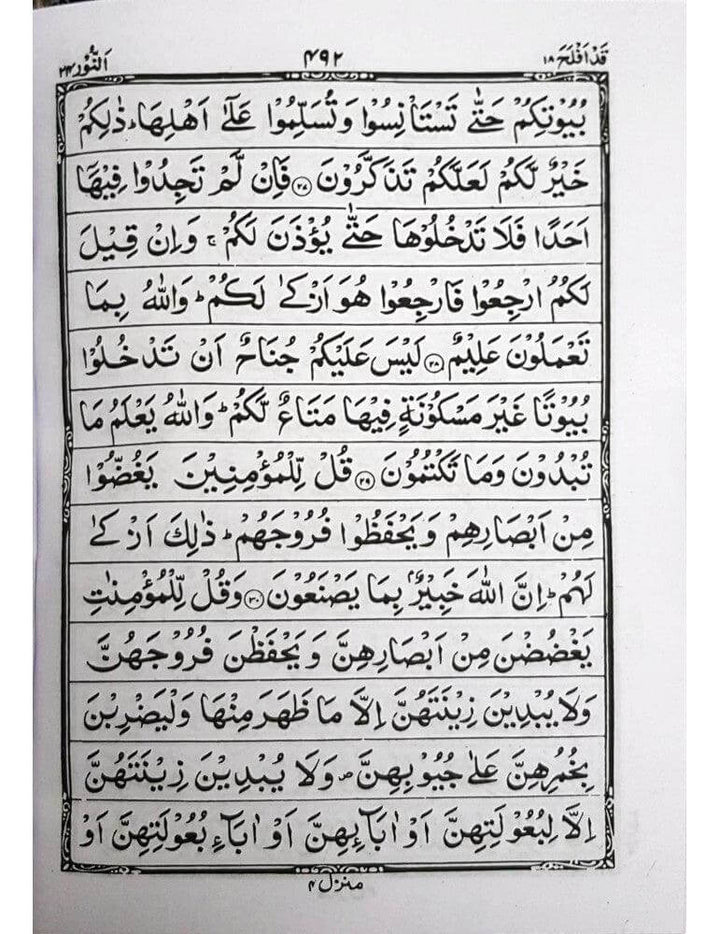 قَدْ اَفْلَحَ ١٨ ۴۹۲ اَلنُّوْر ٢٤
بُيُوْتِكُمْ حَتّٰى تَسْتَاْنِسُوْا وَتُسَلِّمُوْا عَلٰٓى اَهْلِهَا ؕ ذٰلِكُمْ
خَيْرٌ لَّكُمْ لَعَلَّكُمْ تَذَكَّرُوْنَ ﴿۲۷﴾ فَاِنْ لَّمْ تَجِدُوْا فِيْهَاۤ
اَحَدًا فَلَا تَدْخُلُوْهَا حَتّٰى يُؤْذَنَ لَكُمْ ۚ وَاِنْ قِيْلَ
لَكُمُ ارْجِعُوْا فَارْجِعُوْا هُوَ اَزْكٰى لَكُمْ ؕ وَاللّٰهُ بِمَا
تَعْمَلُوْنَ عَلِيْمٌ ﴿۲۸﴾ لَيْسَ عَلَيْكُمْ جُنَاحٌ اَنْ تَدْخُلُوْا
بُيُوْتًا غَيْرَ مَسْكُوْنَةٍ فِيْهَا مَتَاعٌ لَّكُمْ ؕ وَاللّٰهُ يَعْلَمُ مَا
تُبْدُوْنَ وَمَا تَكْتُمُوْنَ ﴿۲۹﴾ قُلْ لِّلْمُؤْمِنِيْنَ يَغُضُّوْا
مِنْ اَبْصَارِهِمْ وَيَحْفَظُوْا فُرُوْجَهُمْ ؕ ذٰلِكَ اَزْكٰى
لَهُمْ ؕ اِنَّ اللّٰهَ خَبِيْرٌۢ بِمَا يَصْنَعُوْنَ ﴿۳۰﴾ وَقُلْ لِّلْمُؤْمِنٰتِ
يَغْضُضْنَ مِنْ اَبْصَارِهِنَّ وَيَحْفَظْنَ فُرُوْجَهُنَّ
وَلَا يُبْدِيْنَ زِيْنَتَهُنَّ اِلَّا مَا ظَهَرَ مِنْهَا وَلْيَضْرِبْنَ
بِخُمُرِهِنَّ عَلٰى جُيُوْبِهِنَّ ۖ وَلَا يُبْدِيْنَ زِيْنَتَهُنَّ
اِلَّا لِبُعُوْلَتِهِنَّ اَوْ اٰبَآئِهِنَّ اَوْ اٰبَآءِ بُعُوْلَتِهِنَّ اَوْ
منزل ۴